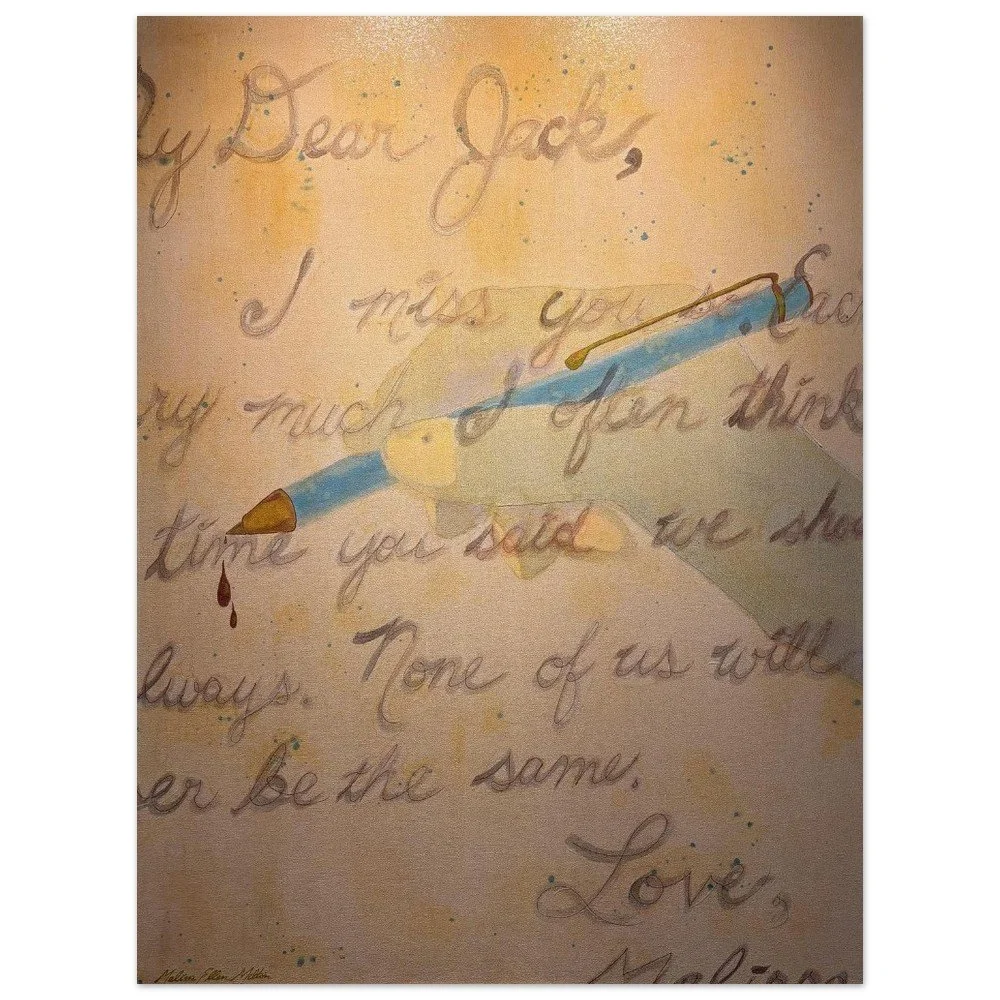 y Dear Jack,
I miss you so. Eac
ry much I often think
time you said we shou
lways. None of us will
er be the same.
Love,
Melissa
Melissa Ellen